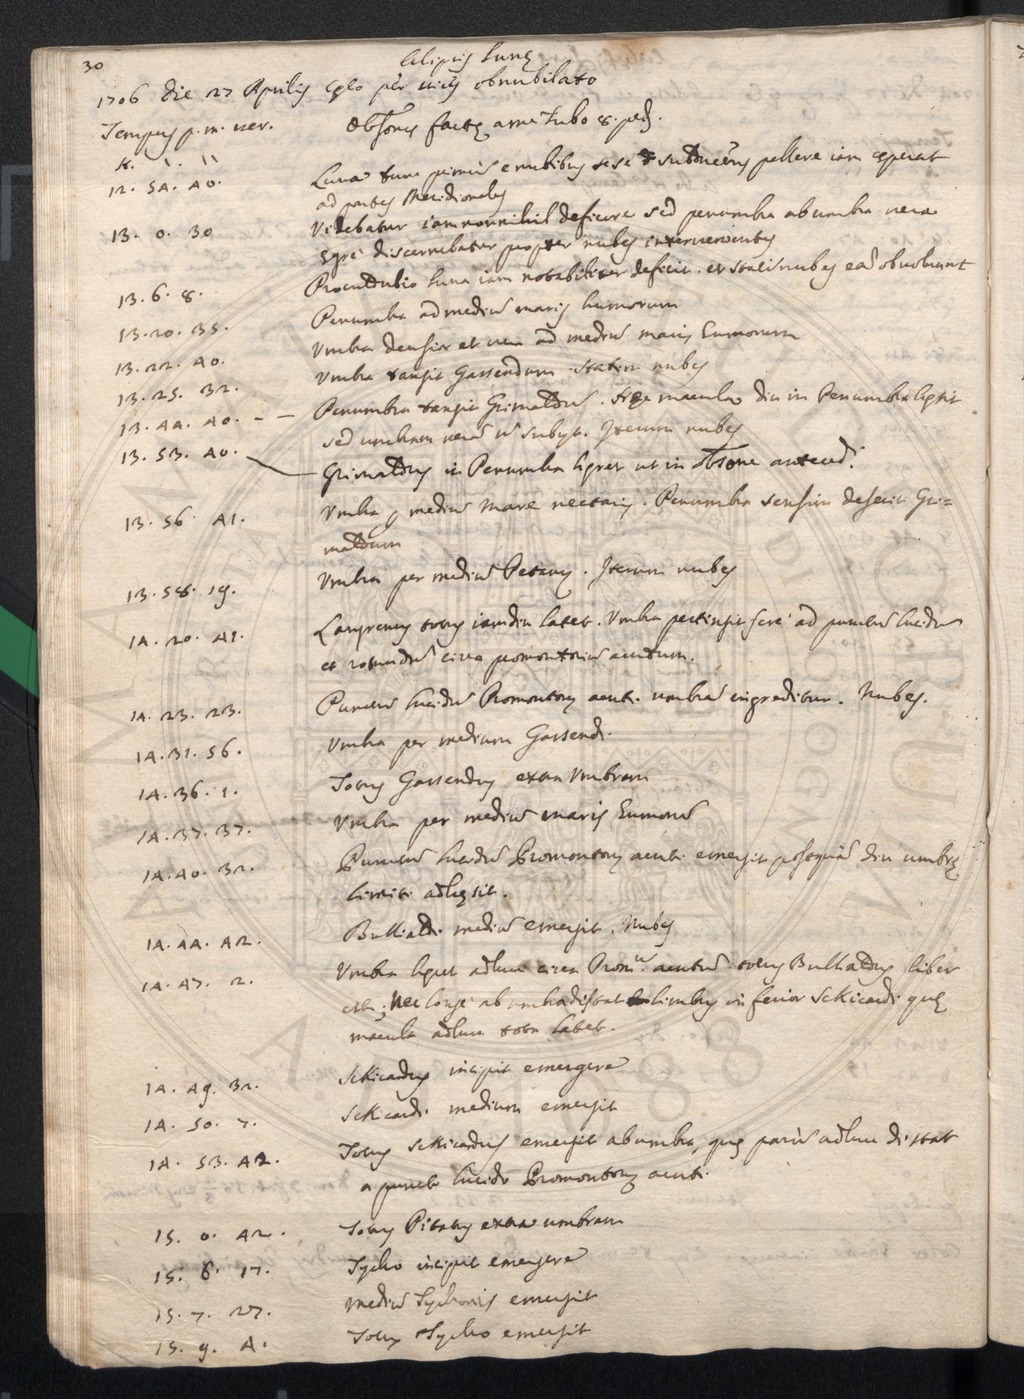 30
Eclipsis Lunę
1706 die 27 Aprilis Cęlo per vices obnubilato
Tempus p. m. ver. Obsones factę a me Tubo 8. ped.
H. ' ''
12. 54. 40. Luna tunc primũ e nubibus sese subducens pallere iam cęperat
ad partes Meridionales
13. 0. 30 Videbatur iam nonnihil deficere sed penumbra ab umbra vera
ęgre discernebatur propter nubes intervenientes
13. 6. 8. Procul dubio Luna iam notabiliter deficit. et statĩ nubes eã obvolvunt
13. 20. 35. Penumbra ad mediũ maris humorum
13. 22. 40. Umbra densior et vera ad mediũ maris humorum
13. 25. 32. Umbra tangit Gassendum statim nubes
13. 44. 40. – – Penumbra tangit Grimaldũ. Hęc macula diu in Penumbra
sed umbram verã ñ subijt. Iterum nubes
13. 53. 40. Grimaldus in Penumbra hęret ut in obsone anteced.
13. 56. 41. Umbra p mediũ Mare nectaris. Penumbra sensim deserit Gri=
maldum
13. 58. 19. Umbra per mediũ Petavij. Iterum nubes
14. 20. 41. Langrenus totus iamdiu latet. Umbra pertingit fere ad punctũ lucidũ
et rotundũ circa promontoriũ acutum.
14. 23. 23. Punctũ lucidũ Promontorij acuti umbrã ingreditur. Nubes.
14. 31. 56. Umbra per medium Gassendi.
14. 36. 1. Totus Gassendus extra Umbram
14. 37. 37. Umbra per mediũ maris humorũ
14. 40. 32. Punctũ lucidũ Promontorij acuti emergit postquã diu umbrę
limiti adhęsit.
14. 44. 42. Bullialdi mediũ emergit. Nubes
14. 47. 2. Umbra hęret adhuc circa Prom. acutũ totus Bullialdus liber
est; Nec longe ab umbra distat limbus inferior Schicardi quę
macula adhuc tota latet.
14. 49. 32. Schicardus incipit emergere
14. 50. 7. Schicardi medium emergit
14. 53. 42. Totus Schicardus emergit ab umbra, quę parũ adhuc distat
a puncto lucido Promontorij acuti.
15. 0. 42. Totus Pitatus extra umbram
15. 6. 17. Tycho incipit emergere
15. 7. 27. Mediũ Tychonis emergit
15. 9. 4. Totus Tycho emergit